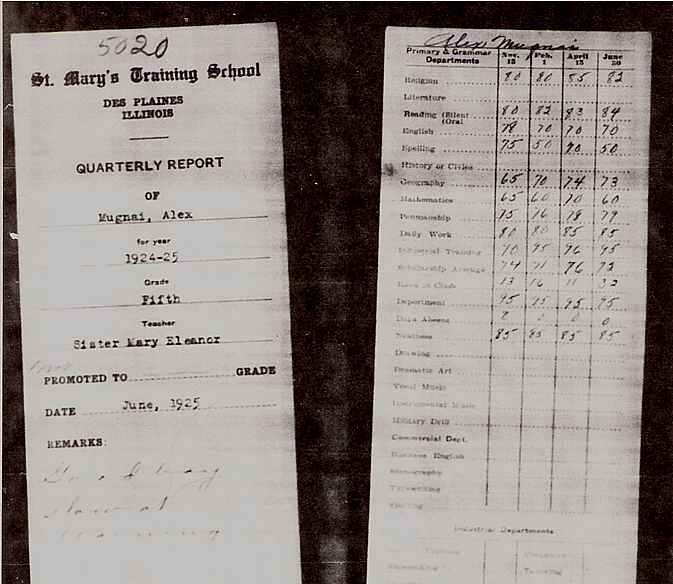 5020
St. Mary's Training School
DES PLAINES
ILLINOIS
QUARTERLY REPORT
OF
Mugnai, Alex
for year
1924-25
Grade
Fifth
Teacher
Sister Mary Eleanor
PROMOTED TO GRADE
DATE June, 1925
REMARKS:
Good boy
Slow at
learning
Alex Mugnai
Primary & Grammar Departments Nov. 15 Feb. 1 April 15 June 30
Religion 80 80 85 82
Literature
Reading (Silent (Oral 80 82 83 84
English 78 70 70 70
Spelling 75 50 70 50
History or Civics
Geography 65 70 74 73
Mathematics 65 60 70 60
Penmanship 75 76 78 79
Daily Work 80 80 85 85
Industrial Training 70 95 96 95
Scholarship Average 74 71 76 72
Rank in Class 13 16 11 32
Deportment 95 95 95 95
Days Absent 2 0 0 0
Neatness 85 85 85 85
Drawing
Dramatic Art
Vocal Music
Instrumental Music
Military Drill
Commercial Dept.
Business English
Stenography
Typewriting
Spelling
Industrial Departments
Training Carpentry
Shoemaking Tailoring